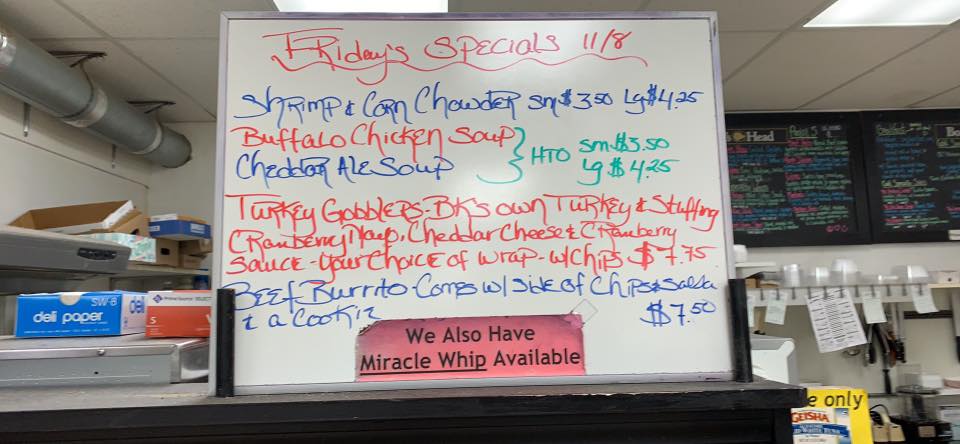 FRiday's SPecials 11/8
ShRimp & CoRn ChowdeR Sm $3.50 Lg $4.25
Buffalo Chicken Soup
CheddaR Ale Soup
HTO Sm $3.50
Lg $4.25
TuRkey GobbleRs - BK's own TuRkey & Stuffing
CRanbeRRy Mayo, CheddaR Cheese & CRanbeRRy
Sauce - YouR Choice of WRap - w/Chips $7.75
Beef BuRRito - Comes w/ side of Chips & Salsa
& a Cookie $7.50
We Also Have
Miracle Whip Available
SW-8
deli paper
Head
Bo
e only
GEISHA